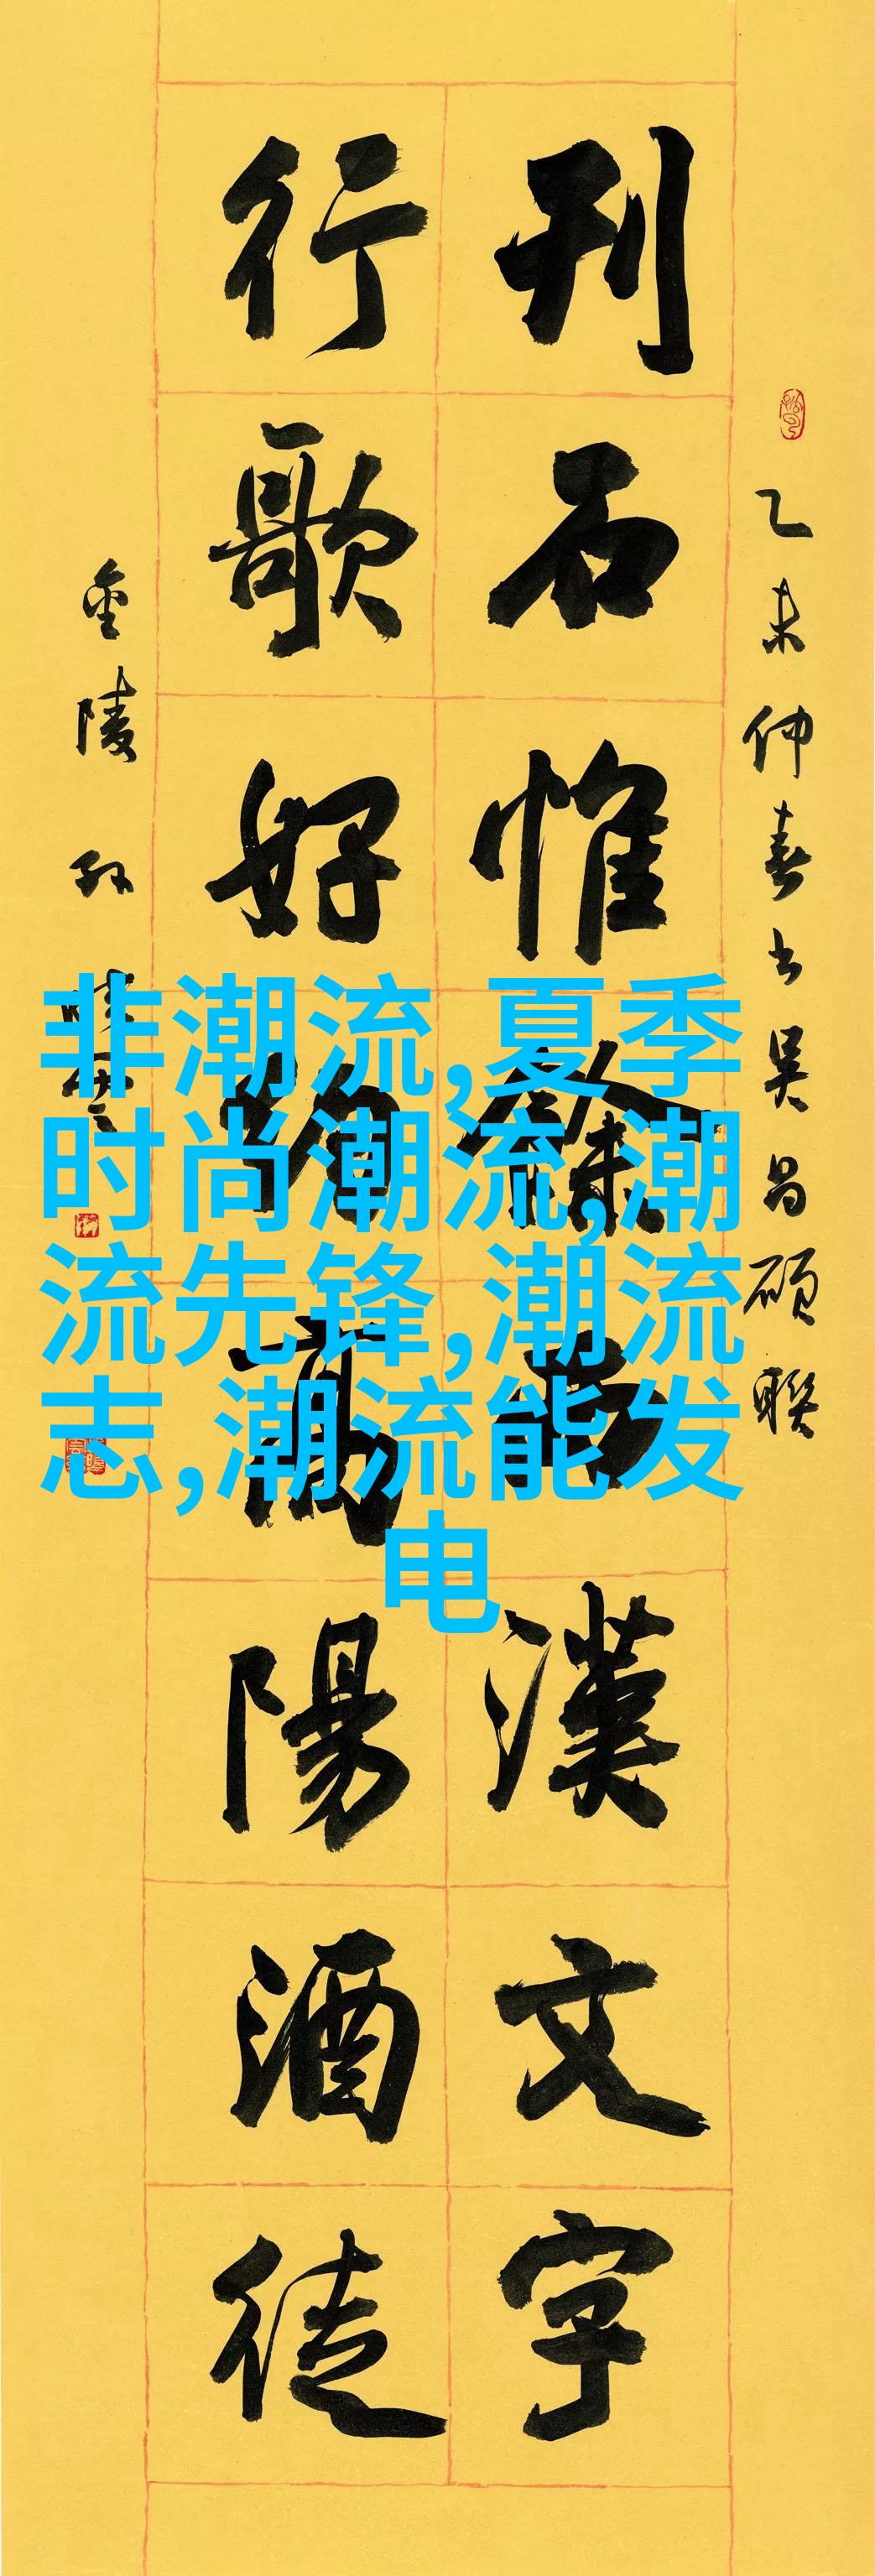 乙未仲春書吳昌碩聯
刊石惟西漢文字
行歌好高陽酒徒
金陵孫曉雲
非潮流,夏季
时尚潮流,潮
流先锋,潮流
志,潮流能发
电